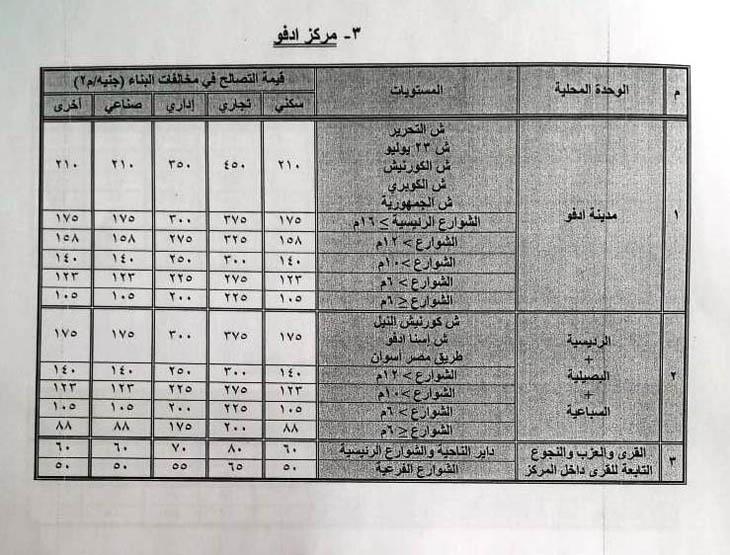 ٣- مركز ادفو
م الوحدة المحلية المستويات قيمة التصالح في مخالفات البناء (جنيه/م٢)
سكني تجاري إداري صناعي أخرى
١ مدينة ادفو
ش التحرير
ش ٢٣ يوليو
ش الكورنيش
ش الكوبري
ش الجمهورية
٢١٠ ٤٥٠ ٣٥٠ ٢١٠ ٢١٠
الشوارع الرئيسية ≥ ١٦م ١٧٥ ٣٧٥ ٣٠٠ ١٧٥ ١٧٥
الشوارع > ١٢م ١٥٨ ٣٢٥ ٢٧٥ ١٥٨ ١٥٨
الشوارع > ١٠م ١٤٠ ٣٠٠ ٢٥٠ ١٤٠ ١٤٠
الشوارع > ٦م ١٢٣ ٢٧٥ ٢٢٥ ١٢٣ ١٢٣
الشوارع ≤ ٦م ١٠٥ ٢٢٥ ٢٠٠ ١٠٥ ١٠٥
٢ الرئيسية
+
البصيلية
+
السباعية
ش كورنيش النيل
ش إسنا ادفو
طريق مصر أسوان
١٧٥ ٣٧٥ ٣٠٠ ١٧٥ ١٧٥
الشوارع > ١٢م ١٤٠ ٣٠٠ ٢٥٠ ١٤٠ ١٤٠
الشوارع > ١٠م ١٢٣ ٢٧٥ ٢٢٥ ١٢٣ ١٢٣
الشوارع > ٦م ١٠٥ ٢٢٥ ٢٠٠ ١٠٥ ١٠٥
الشوارع ≤ ٦م ٨٨ ٢٠٠ ١٧٥ ٨٨ ٨٨
٣ القرى والعزب والنجوع
التابعة للقرى داخل المركز
داير الناحية والشوارع الرئيسية ٦٠ ٨٠ ٧٠ ٦٠ ٦٠
الشوارع الفرعية ٥٠ ٦٥ ٥٥ ٥٠ ٥٠